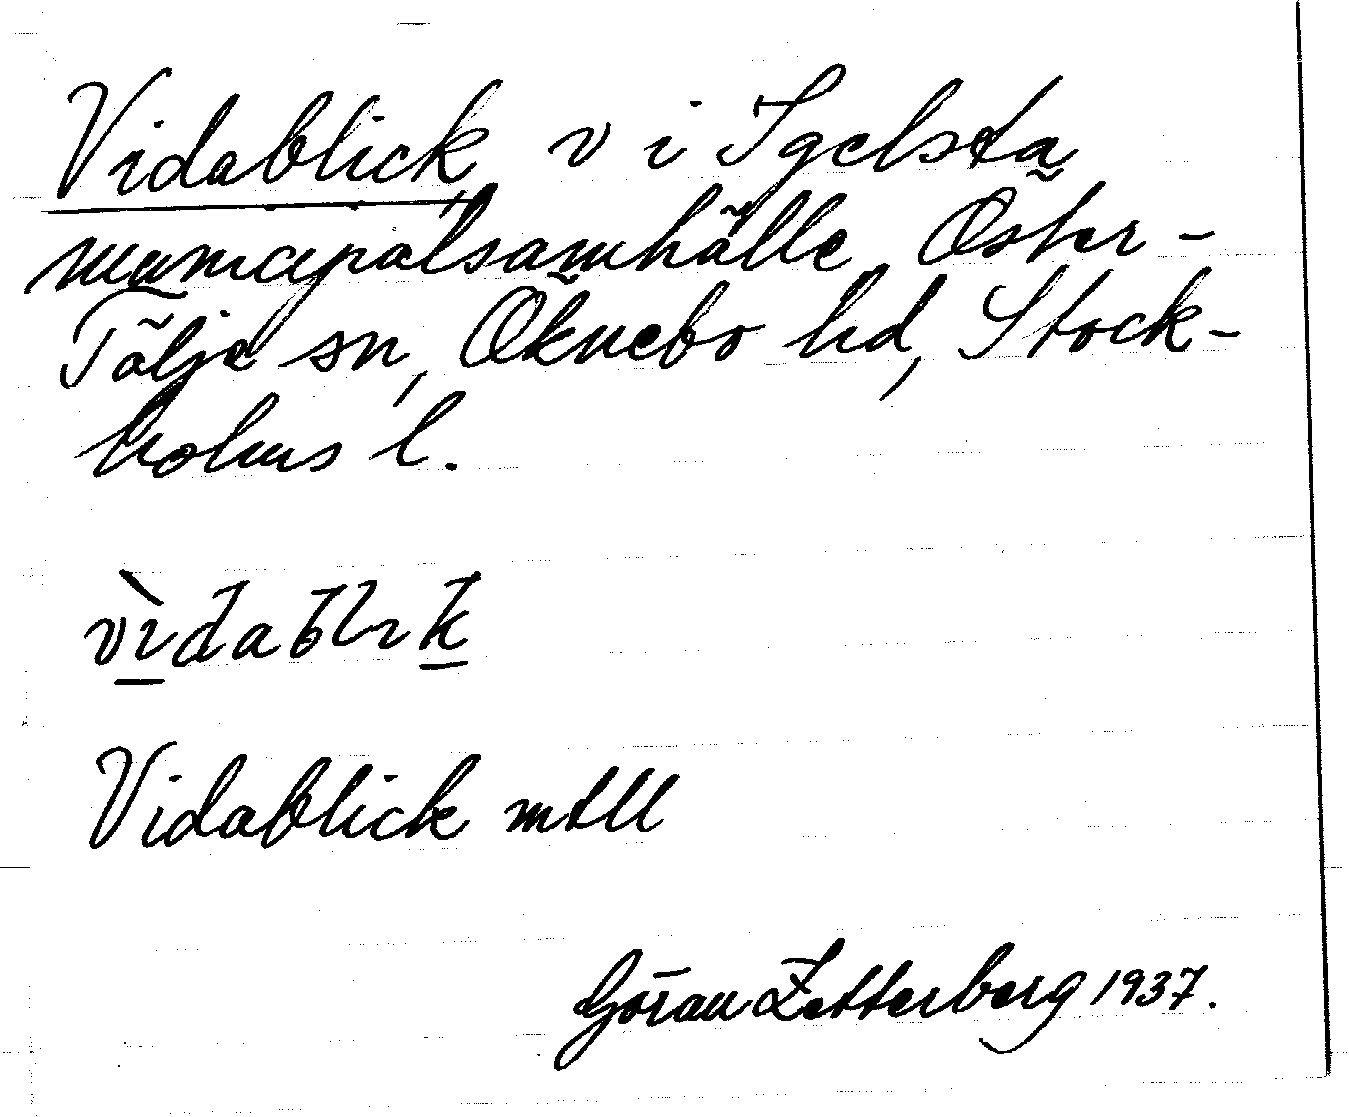 Vidablick v i Igelsta
municipalsamhälle, Öster-
Tälje sn, Öknebo hd, Stock-
holms l.
vìdablık
Vidablick mtll
Göran Zetterberg 1937.